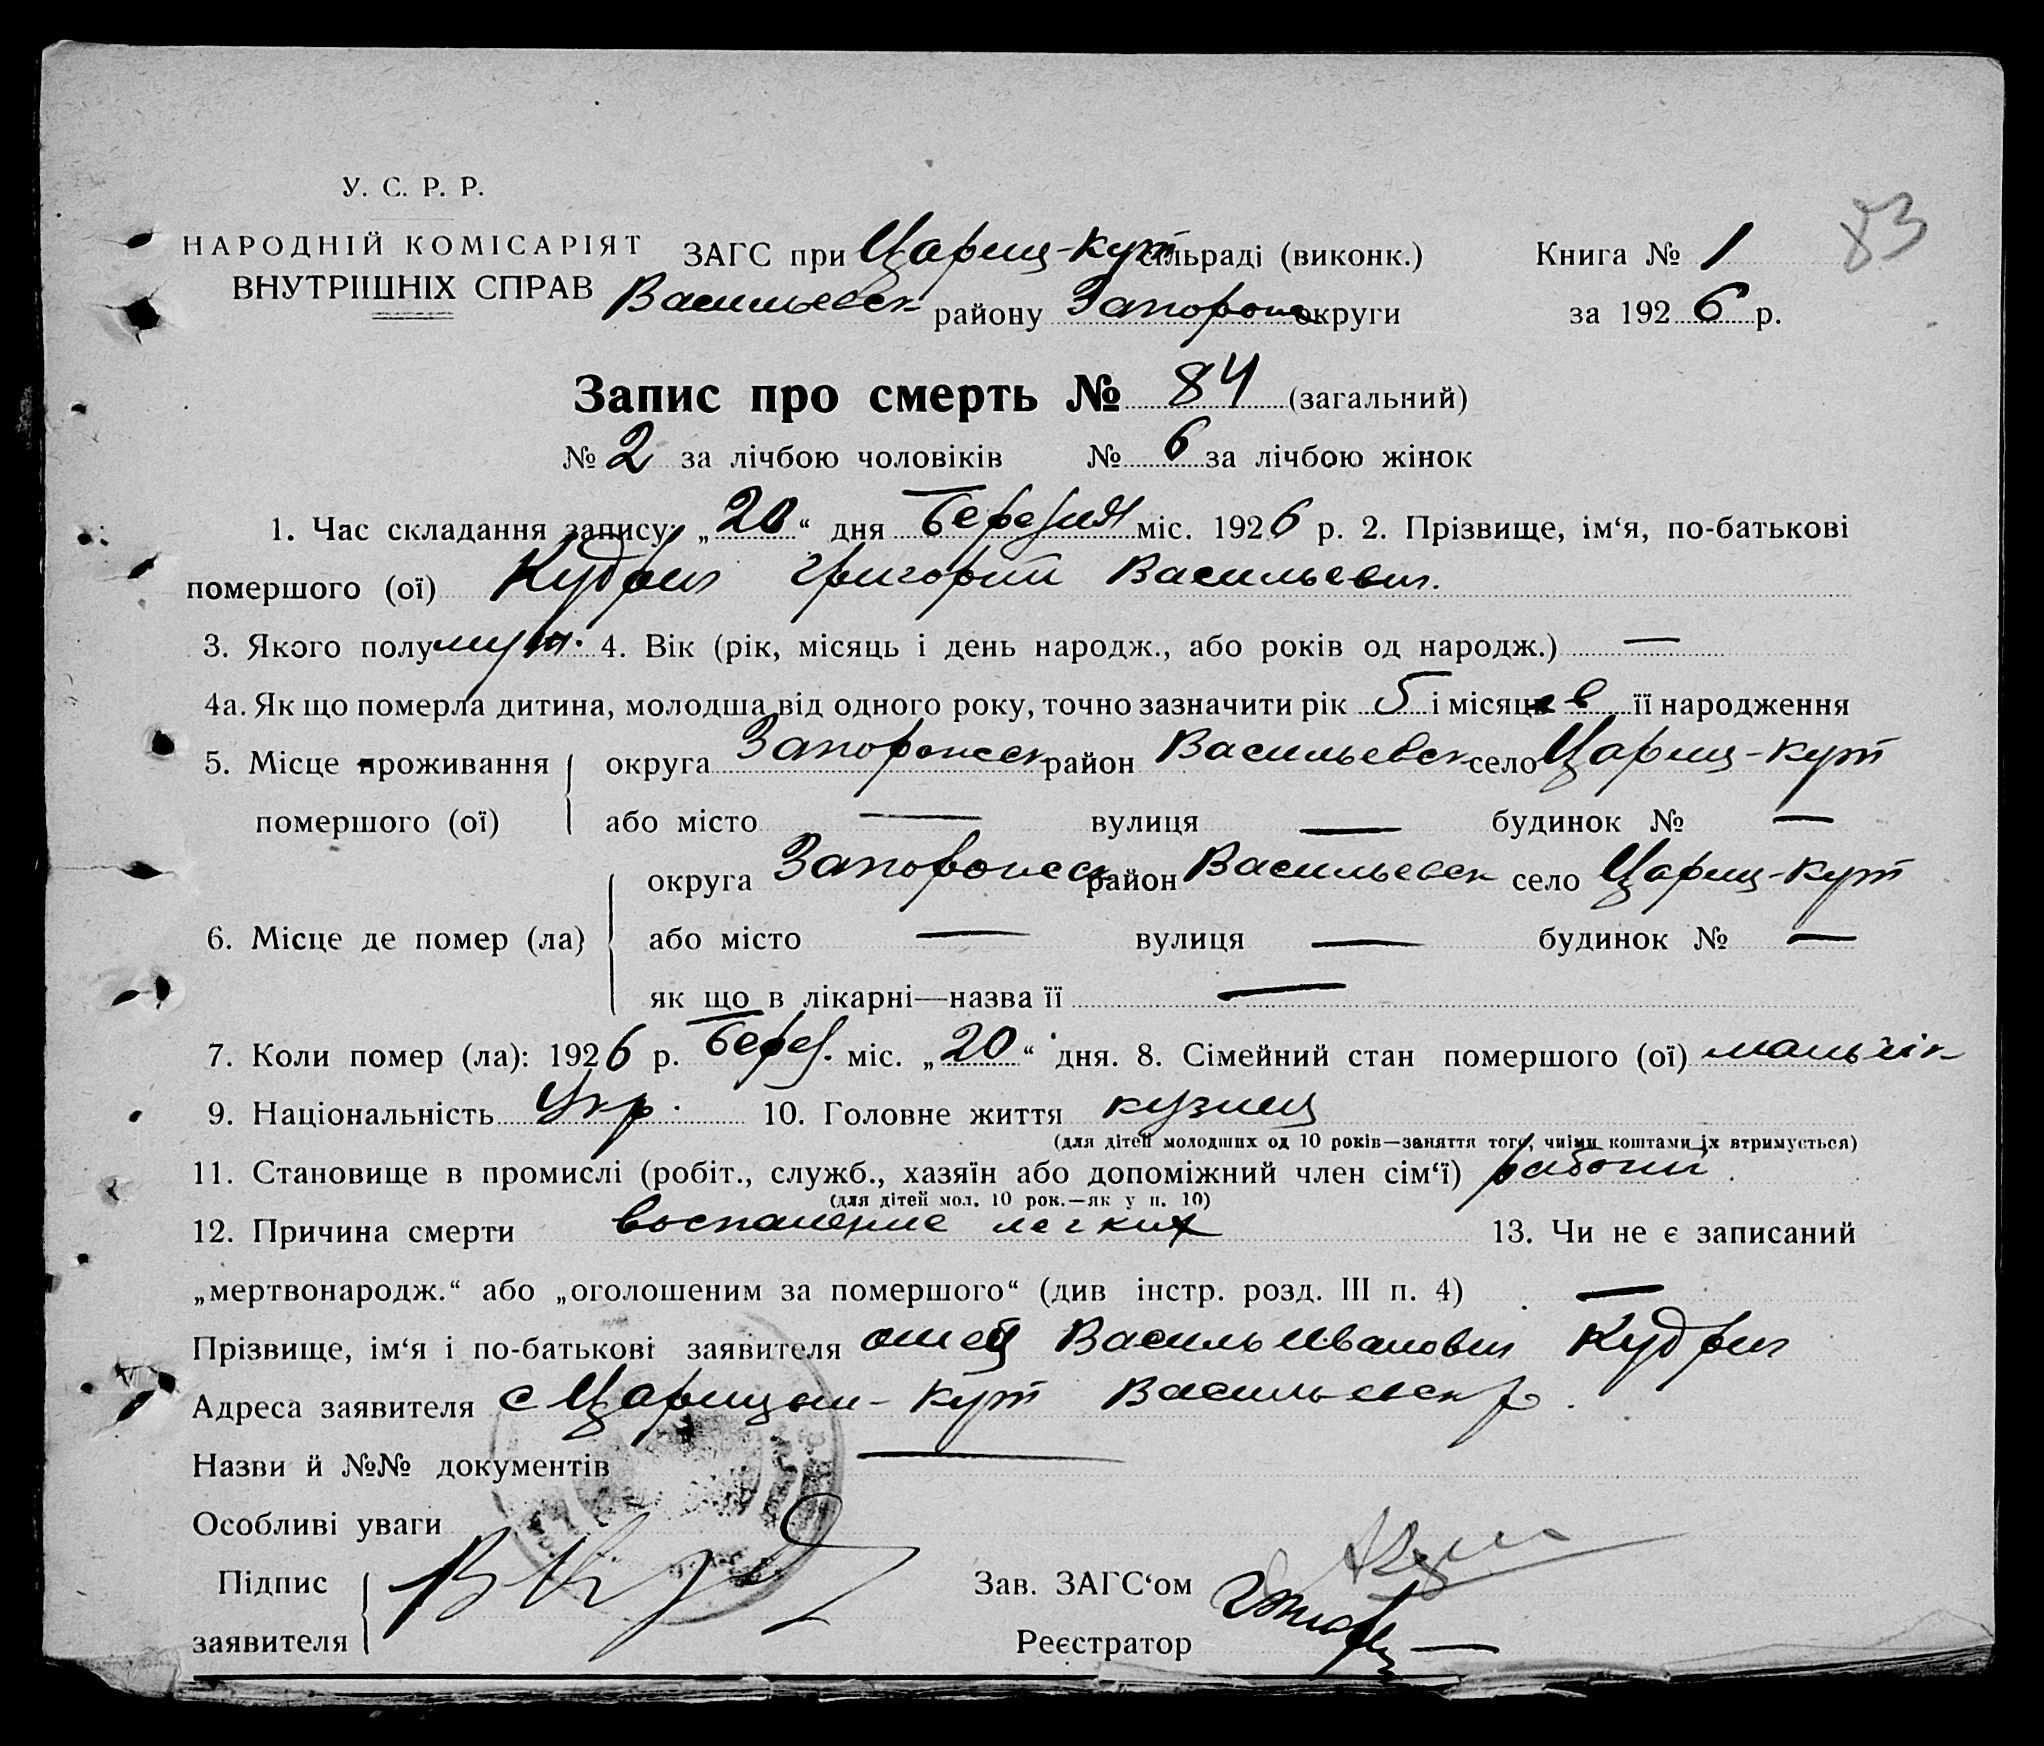 У. С. Р. Р.
НАРОДНІЙ КОМІСАРІЯТ
ВНУТРІШНІХ СПРАВ
ЗАГС при Цариц-Кут сільраді (виконк.)
Васильевск району Запорож округи
Книга № 1
83
за 1926 р.
Запис про смерть № 84 (загальний)
№ 2 за лічбою чоловіків № 6 за лічбою жінок
1. Час складання запису: „20“ дня Березня міс. 1926 р. 2. Прізвище, ім‘я, по-батькові
помершого (ої) Кудрич Григорий Васильевич.
3. Якого полу муж. 4. Вік (рік, місяць і день народж., або років од народж.) —
4а. Як що померла дитина, молодша від одного року, точно зазначити рік 5 і місяцев її народження
5. Місце проживання округа Запорожск район Васильевск село Цариц-Кут
помершого (ої) або місто — вулиця — будинок № —
округа Запорожск район Васильевск село Цариц-Кут
6. Місце де помер (ла) або місто — вулиця — будинок № —
як що в лікарні—назва її —
7. Коли помер (ла): 1926 р. Берез. міс. „20“ дня. 8. Сімейний стан помершого (ої) мальчік
9. Національність Укр. 10. Головне життя кузнец
(для дітей молодших од 10 років—заняття того, чиїми коштами їх втримується)
11. Становище в промислі (робіт., служб., хазяїн або допоміжний член сім‘ї) рабочий.
(для дітей мол. 10 рок.—як у п. 10)
12. Причина смерти воспаление легких 13. Чи не є записаний
„мертвонародж.“ або „оголошеним за помершого“ (див інстр. розд. III п. 4) —
Прізвище, ім‘я і по-батькові заявителя отец Василь Иванович Кудрич
Адреса заявителя с Царицын-Кут Васильевск р.
Назви й №№ документів —
Особливі уваги
Підпис
заявителя
Зав. ЗАГС‘ом
Реєстратор